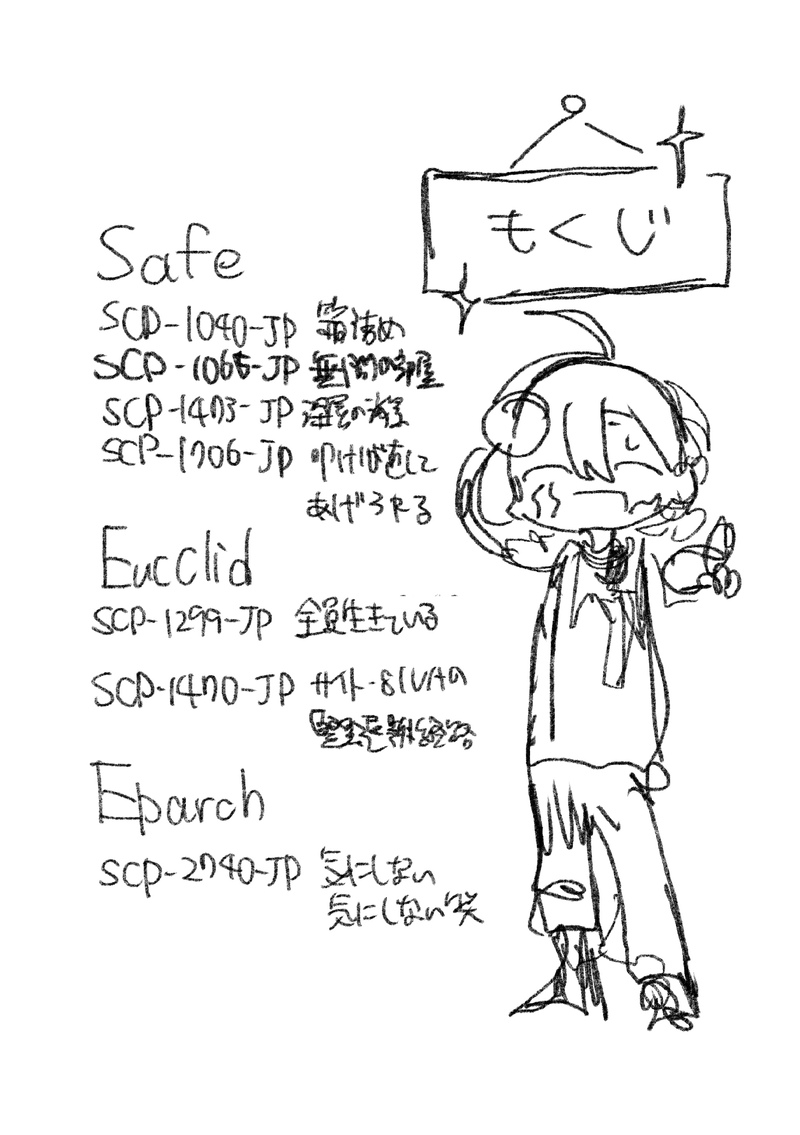 もくじ
Safe
SCP-1040-JP 箱詰め
SCP-1065-JP 無間の部屋
SCP-1473-JP
SCP-1706-JP 叩けば直して
あげられる
Eucclid
SCP-1299-JP 全員生きている
SCP-1470-JP サイト-81VAの
緊急避難経路
Eparch
SCP-2740-JP 気にしない
気にしない笑